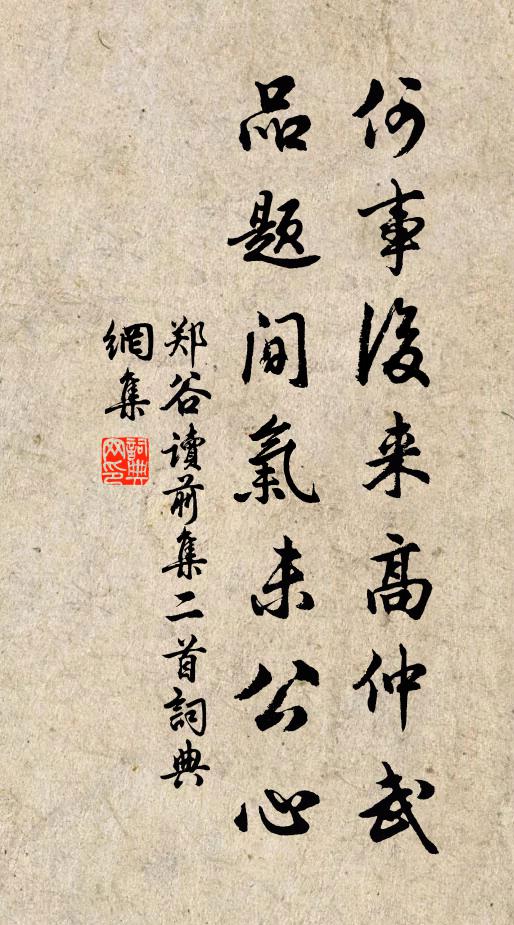 何事後来高仲武
品题间氣未公心
郑谷讀前集二首詞典
網集
詞典
网印